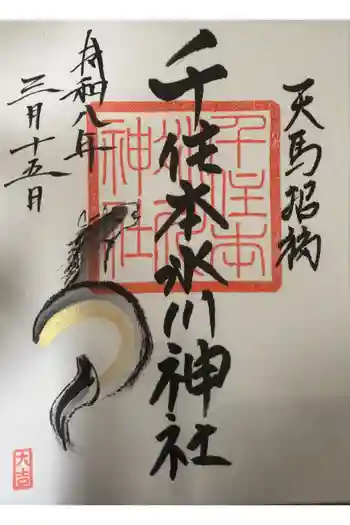 天馬招福
千住本氷川神社
令和八年
三月十五日
千住本
氷川
神社
大吉